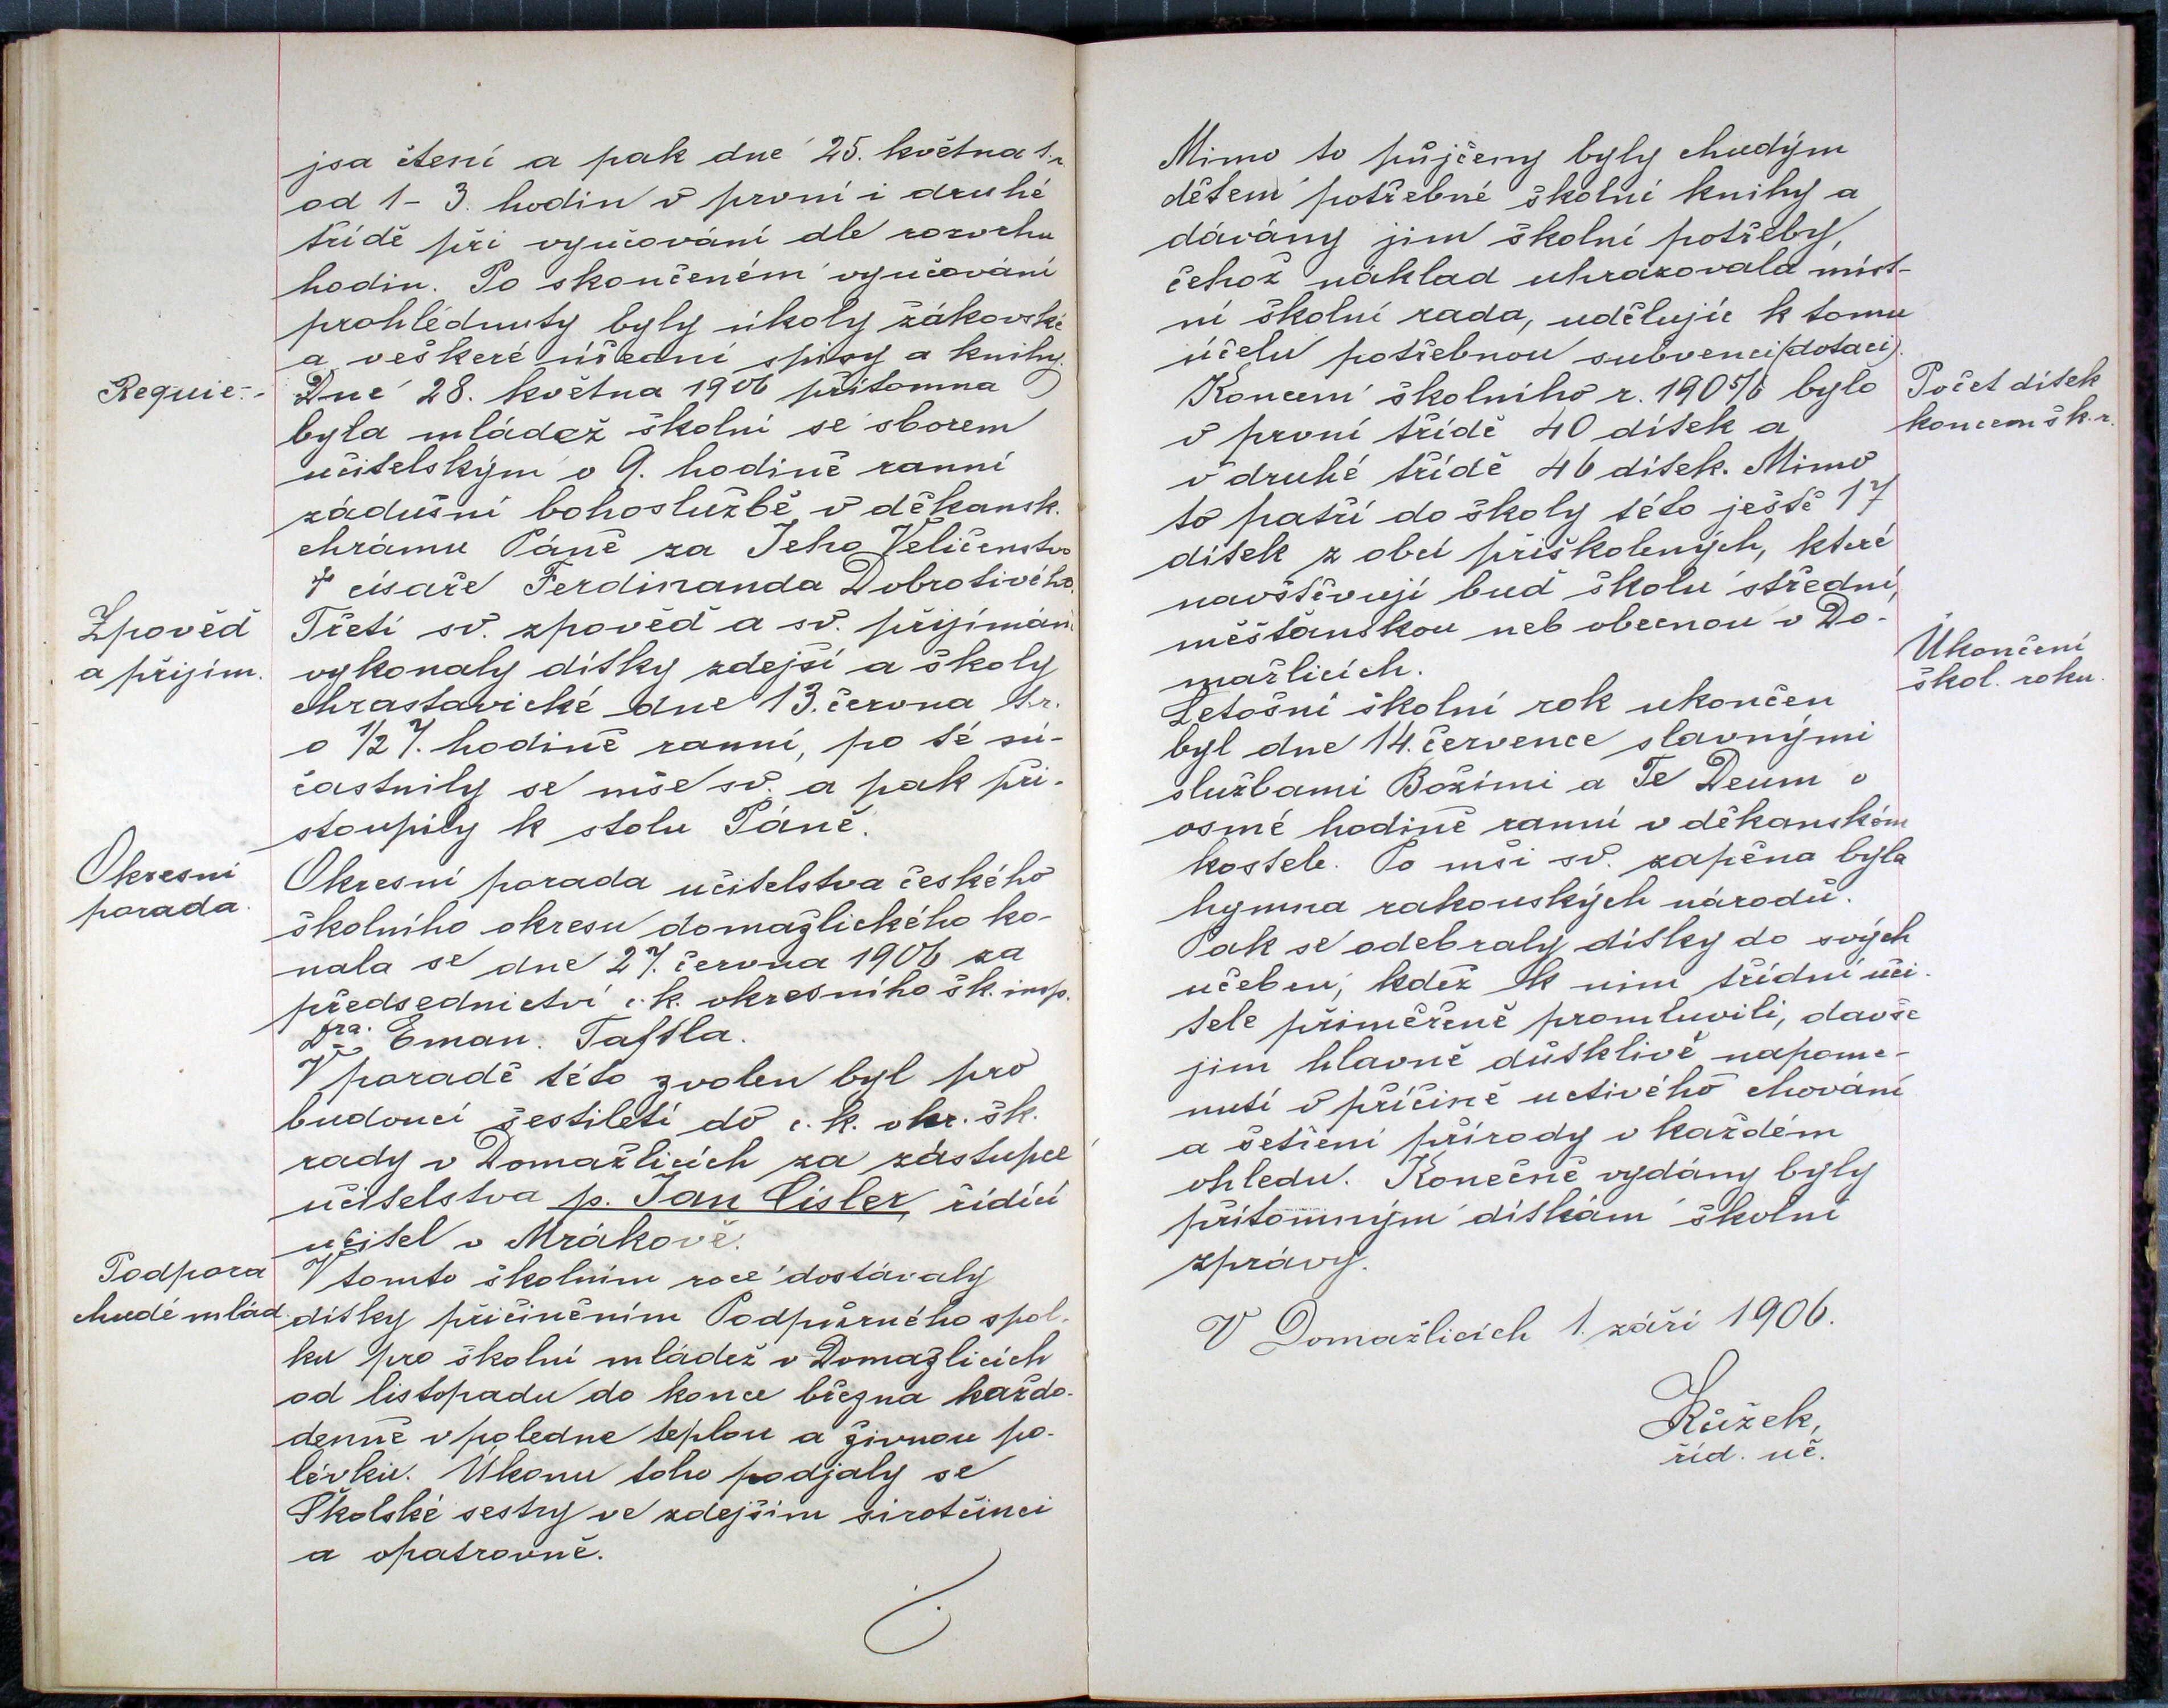 jsa čtení a pak dne 25. května t.r.
od 1 - 3. hodin v první i druhé
třídě při vyučování dle rozvrhu
hodin. Po skončeném vyučování
prohlédnuty byly úkoly žákovské
a veškeré úřední spisy a knihy.
Requie. -
Dne 28. května 1906 přítomna
byla mládež školní se sborem
učitelským o 9. hodině ranní
zádušní bohoslužbě v děkansk.
chrámu Páně za Jeho Veličenstvo
† císaře Ferdinanda Dobrotivého.
Zpověď
a přijím.
Třetí sv. zpověď a sv. přijímání
vykonaly dítky zdejší a školy
chrastavické dne 13. června t.r.
o 1/2 7. hodině ranní, po té sú-
častnily se mše sv. a pak při-
stoupily k stolu Páně.
Okresní
porada.
Okresní porada učitelstva českého
školního okresu domažlického ko-
nala se dne 27. června 1906 za
předsednictví c. k. okresního šk. insp.
Dra. Eman. Taftla.
V poradě této zvolen byl pro
budoucí šestiletí do c. k. okr. šk.
rady v Domažlicích za zástupce
učitelstva p. Jan Cisler, řídící
učitel v Mrákově.
Podpora
chudé mlád.
V tomto školním roce dostávaly
dítky přičiněním Podpůrného spol-
ku pro školní mládež v Domažlicích
od listopadu do konce března každo-
denně v poledne teplou a živnou po-
lévku. Úkonu toho podjaly se
Školské sestry ve zdejším sirotčinci
a opatrovně.
Mimo to půjčeny byly chudým
dětem potřebné školní knihy a
dávány jim školní potřeby,
čehož náklad uhrazovala míst-
ní školní rada, udělujíc k tomu
účelu potřebnou subvenci (dotaci).
Počet dítek
koncem šk. r.
Koncem školního r. 1905/6 bylo
v první třídě 40 dítek a
v druhé třídě 46 dítek. Mimo
to patří do školy této ještě 17
dítek z obcí přiškolených, které
navštěvují buď školu střední,
měšťanskou neb obecnou v Do-
mažlicích.
Ukončení
škol. roku.
Letošní školní rok ukončen
byl dne 14. července slavnými
službami Božími a Te Deum o
osmé hodině ranní v děkanském
kostele. Po mši sv. zapěna byla
hymna rakouských národů.
Pak se odebraly dítky do svých
učeben, kdež k nim třídní uči-
tele přiměřeně promluvili, davše
jim hlavně důtklivé napome-
nutí v příčině uctivého chování
a šetření přírody v každém
ohledu. Konečně vydány byly
přítomným dítkám školní
zprávy.
V Domažlicích 1. září 1906.
Růžek,
říd. uč.